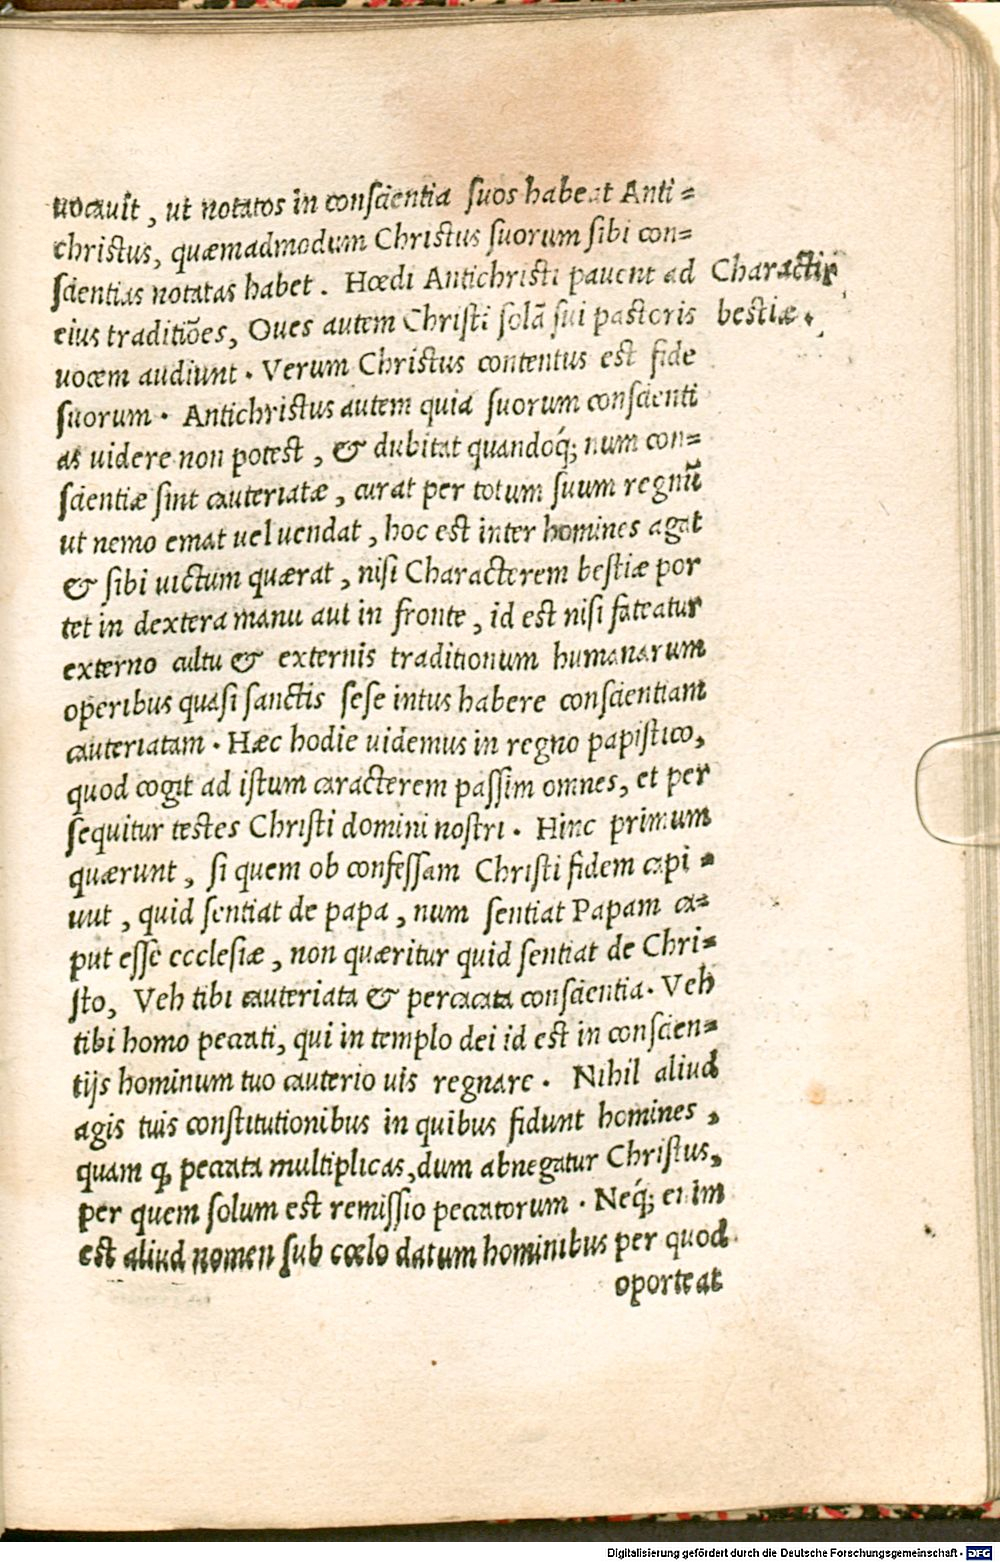 uocauit, ut notatos in conſcientia ſuos habeat Anti⸗
chriſtus, quæmadmodum Chriſtus ſuorum ſibi con⸗
ſcientias notatas habet. Hœdi Antichriſti pauent ad
Charactir
eius traditiões, Oues autem Chriſti ſolã ſui paſtoris
beſtiæ.
uocem audiunt. Verum Chriſtus contentus eſt fide
ſuorum. Antichriſtus autem quia ſuorum conſcienti
as uidere non poteſt, & dubitat quandoq́; num con⸗
ſcientiæ ſint cauteriatæ, curat per totum ſuum regnũ
ut nemo emat uel uendat, hoc eſt inter homines agat
& ſibi uictum quærat, niſi Characterem beſtiæ por
tet in dextera manu aut in fronte, id eſt niſi fateatur
externo cultu & externis traditionum humanarum
operibus quaſi ſanctis ſeſe intus habere conſcientiam
cauteriatam. Hæc hodie uidemus in regno papiſtico,
quod cogit ad iſtum caracterem paſſim omnes, et per
ſequitur teſtes Chriſti domini noſtri. Hinc primum
quærunt, ſi quem ob confeſſam Chriſti fidem capi⸗
uut, quid ſentiat de papa, num ſentiat Papam ca⸗
put eſſe eccleſiæ, non quæritur quid ſentiat de Chri⸗
ſto, Veh tibi cauteriata & percacata conſcientia. Veh
tibi homo peccati, qui in templo dei id eſt in conſcien⸗
tijs hominum tuo cauterio uis regnare. Nihil aliud
agis tuis conſtitutionibus in quibus fidunt homines,
quam ꝙ peccata multiplicas, dum abnegatur Chriſtus,
per quem ſolum eſt remiſſio peccatorum. Neq́; enim
eſt aliud nomen ſub cœlo datum hominibus per quod
oporteat
Digitalisierung gefördert durch die Deutsche Forschungsgemeinschaft - DFG